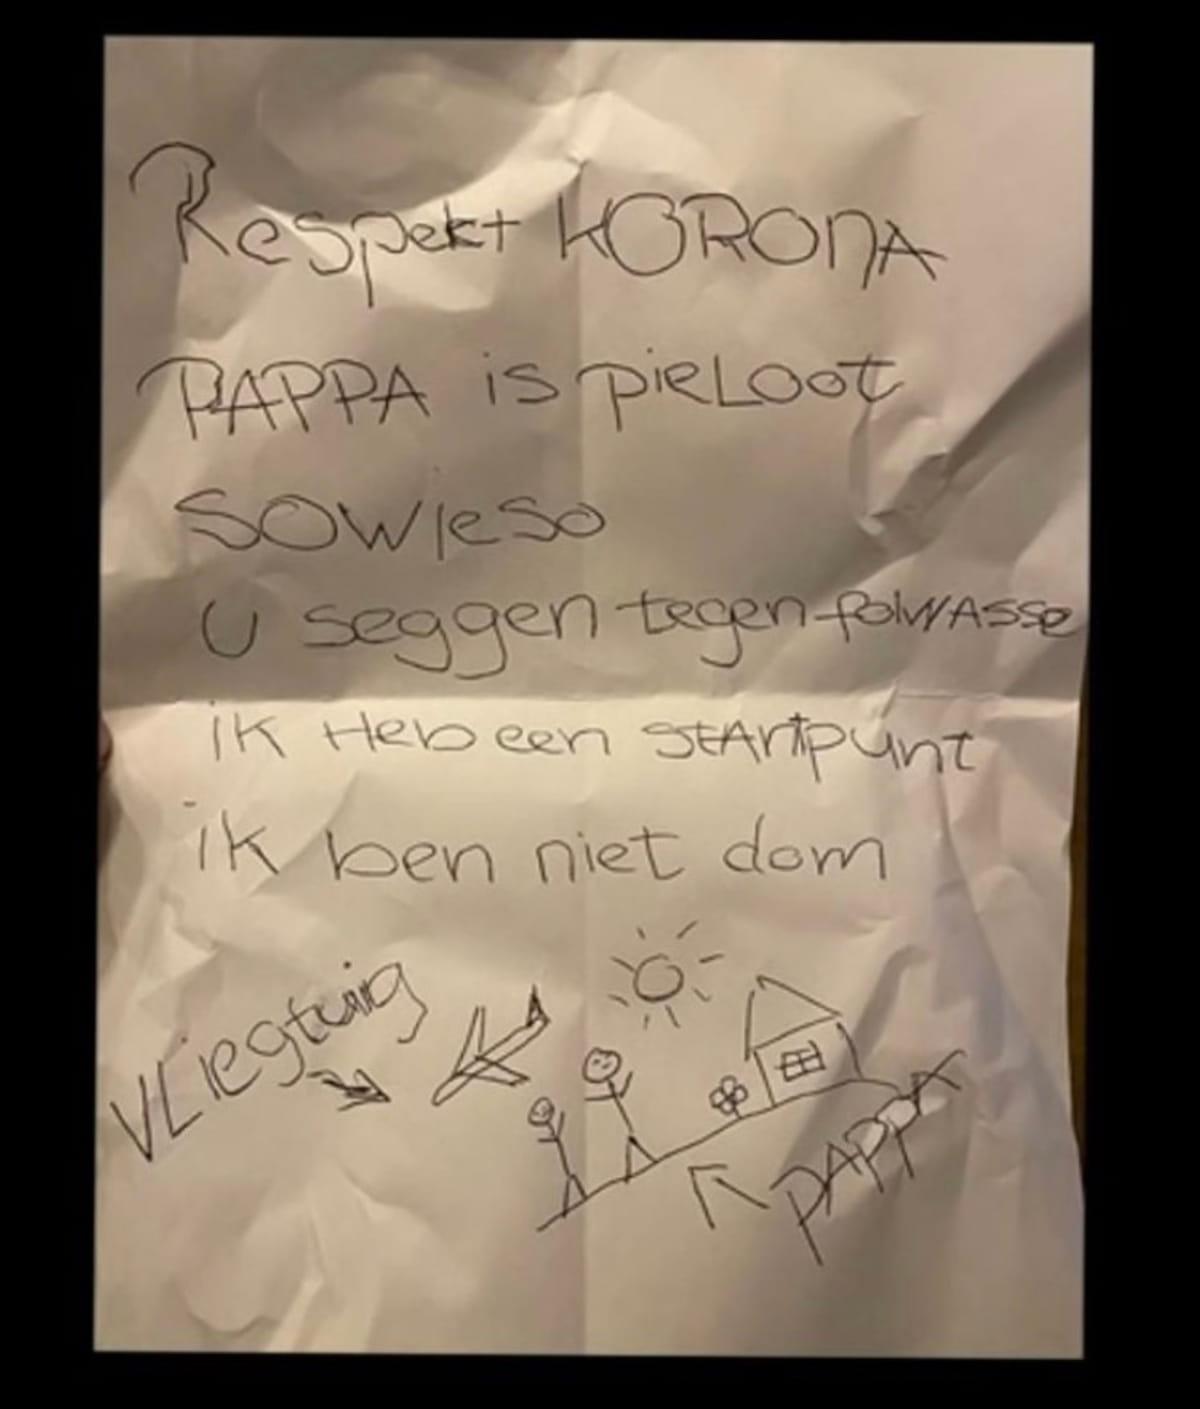 Respekt KORONA
PAPPA is pieLoot
SOWieSO
U seggen tegen folWASSe
ik Heb een STARTpunt
ik ben niet dom
VLiegtuig
PAPPA